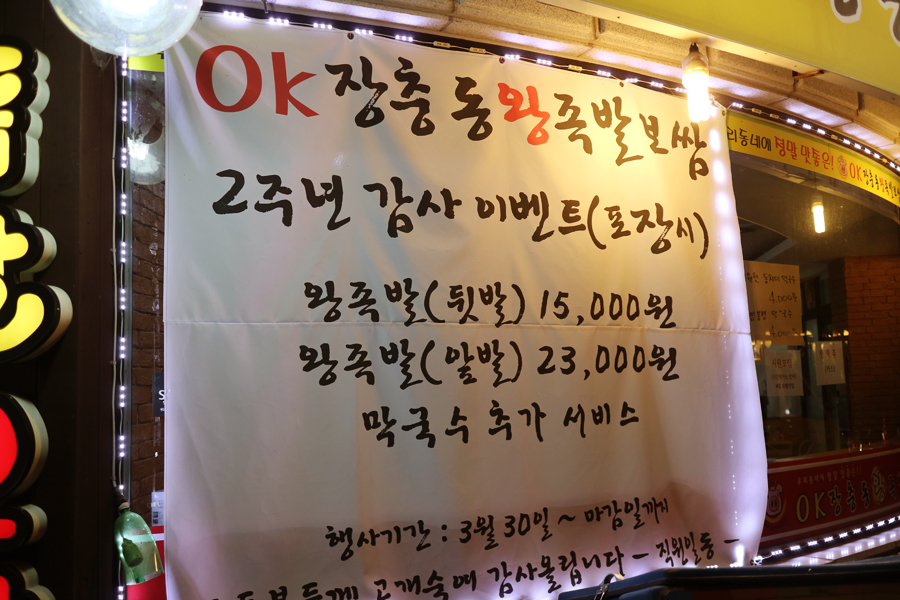 Ok 장충동왕족발보쌈
2주년 감사 이벤트(포장시)
왕족발(뒷발) 15,000원
왕족발(앞발) 23,000원
막국수 추가 서비스
행사기간 : 3월 30일 ~ 마감일까지
고개숙여 감사올립니다 - 직원일동 -
리동네에 정말 맛좋은! OK장충동
4,000원
OK장충동왕